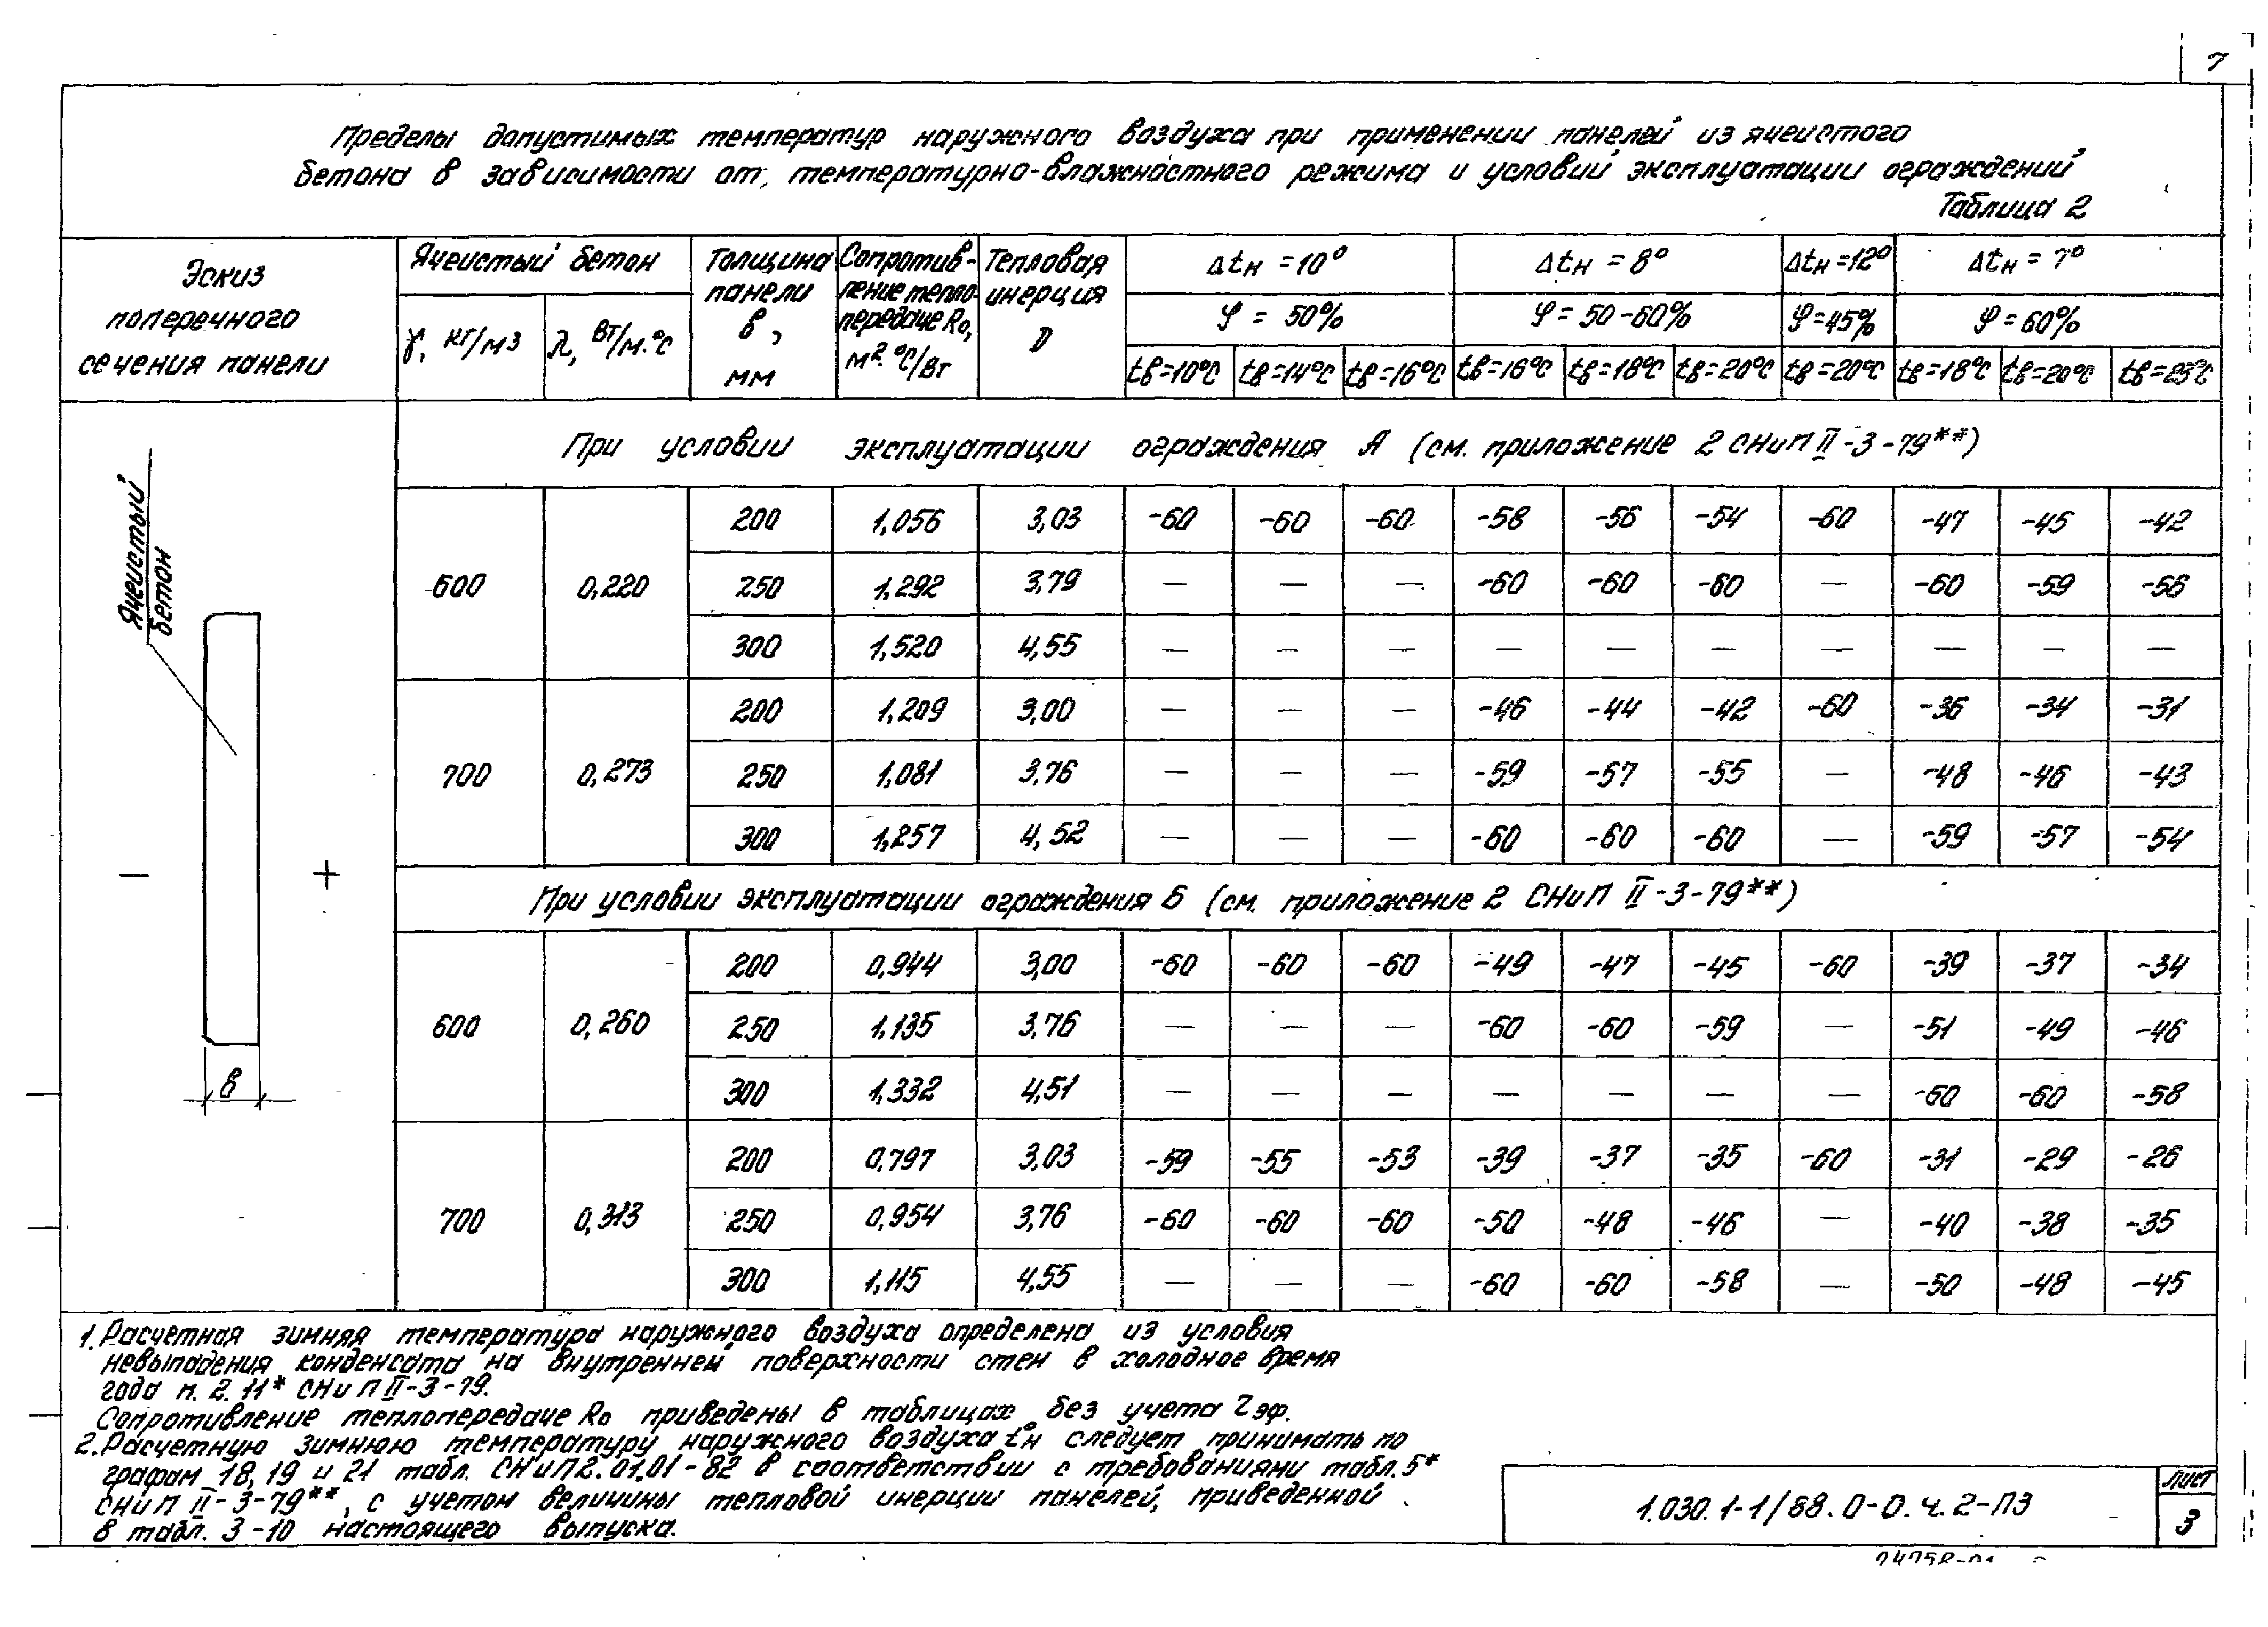 7
Пределы допустимых температур наружного воздуха при применении панелей из ячеистого
бетона в зависимости от температурно-влажностного режима и условий эксплуатации ограждений
Таблица 2
Эскиз поперечного сечения панели
Ячеистый бетон
γ, кг/м3
λ, Вт/м.°С
Толщина панели в, мм
Сопротив-ление тепло-передаче Rо, м².°С/Вт
Тепловая инерция D
Δtн = 10°
Δtн = 8°
Δtн = 12°
Δtн = 7°
φ = 50%
φ = 50-60%
φ = 45%
φ = 60%
tв=10°С tв=14°С tв=16°С tв=16°С tв=18°С tв=20°С tв=20°С tв=18°С tв=20°С tв=25°С
При условии эксплуатации ограждения А (см. приложение 2 СНиП II-3-79**)
Ячеистый
бетон
600 0,220
200 1,056 3,03 -60 -60 -60 -58 -56 -54 -60 -47 -45 -42
250 1,292 3,79 — — — -60 -60 -60 — -60 -59 -56
300 1,520 4,55 — — — — — — — — — —
700 0,273
200 1,209 3,00 — — — -46 -44 -42 -60 -36 -34 -31
250 1,081 3,76 — — — -59 -57 -55 — -48 -46 -43
300 1,257 4,52 — — — -60 -60 -60 — -59 -57 -54
При условии эксплуатации ограждения Б (см. приложение 2 СНиП II-3-79**)
600 0,260
200 0,944 3,00 -60 -60 -60 -49 -47 -45 -60 -39 -37 -34
250 1,135 3,76 — — — -60 -60 -59 — -51 -49 -46
300 1,332 4,51 — — — — — — — -60 -60 -58
700 0,313
200 0,797 3,03 -59 -55 -53 -39 -37 -35 -60 -31 -29 -26
250 0,954 3,76 -60 -60 -60 -50 -48 -46 — -40 -38 -35
300 1,115 4,55 — — — -60 -60 -58 — -50 -48 -45
— +
в
1. Расчетная зимняя температура наружного воздуха определена из условия
невыпадения конденсата на внутренней поверхности стен в холодное время
года п. 2.11* СНиП II-3-79.
Сопротивление теплопередаче Rо приведены в таблицах без учета rэф.
2. Расчетную зимнюю температуру наружного воздуха tн следует принимать по
графам 18, 19 и 21 табл. СНиП 2.01.01-82 в соответствии с требованиями табл. 5*
СНиП II-3-79**, с учетом величины тепловой инерции панелей, приведенной
в табл. 3-10 настоящего выпуска.
1.030.1-1/88.0-0.ч.2-ПЗ
Лист
3